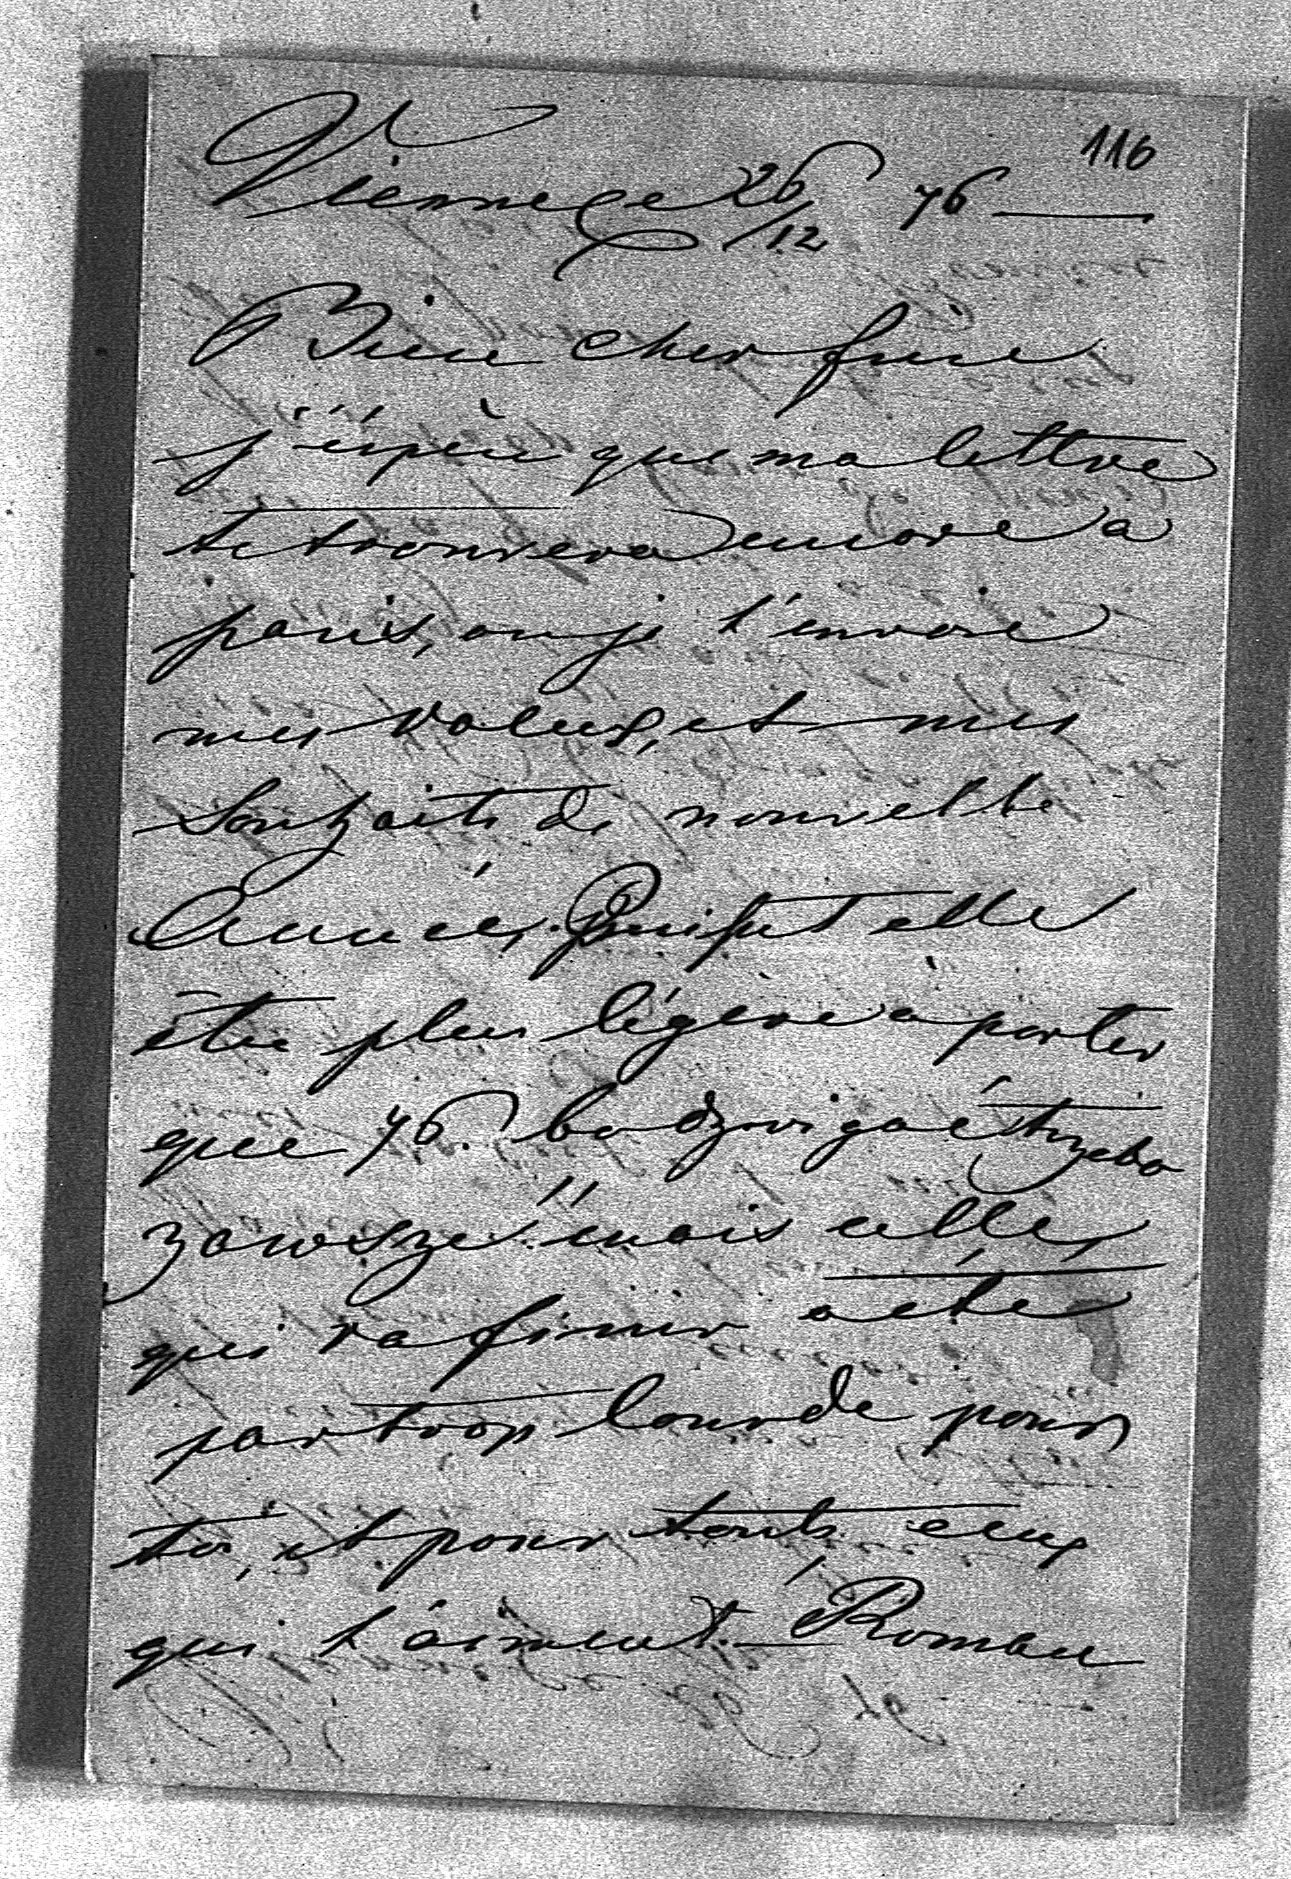 116
Vienne ce 26/12 76
Bien cher frère
j'éspère que ma lettre
te trouvera encore a
paris, ou je t'envoie
mes voeux, et mes
Souhaits de nouvelle
Année, Puisset elle
être plus légère a porter
que 76. bo dzwigać trzeba
zawsze" mais celle,
qui va finir a été
par trop lourde pour
toi, et pour touts ceux
qui t'aiment. Roman